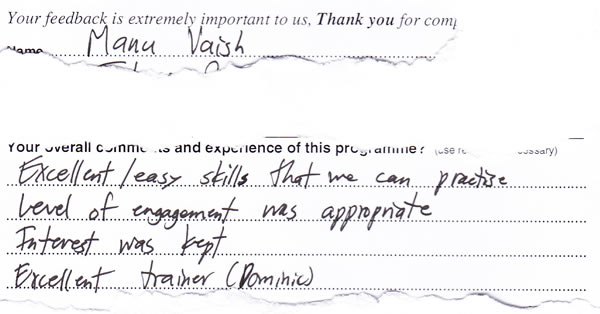 Your feedback is extremely important to us, Thank you for
Name Manu Vaish
Your overall comments and experience of this programme? (use
Excellent / easy skills that we can practise
Level of engagement was appropriate
Interest was kept
Excellent trainer (Dominic)